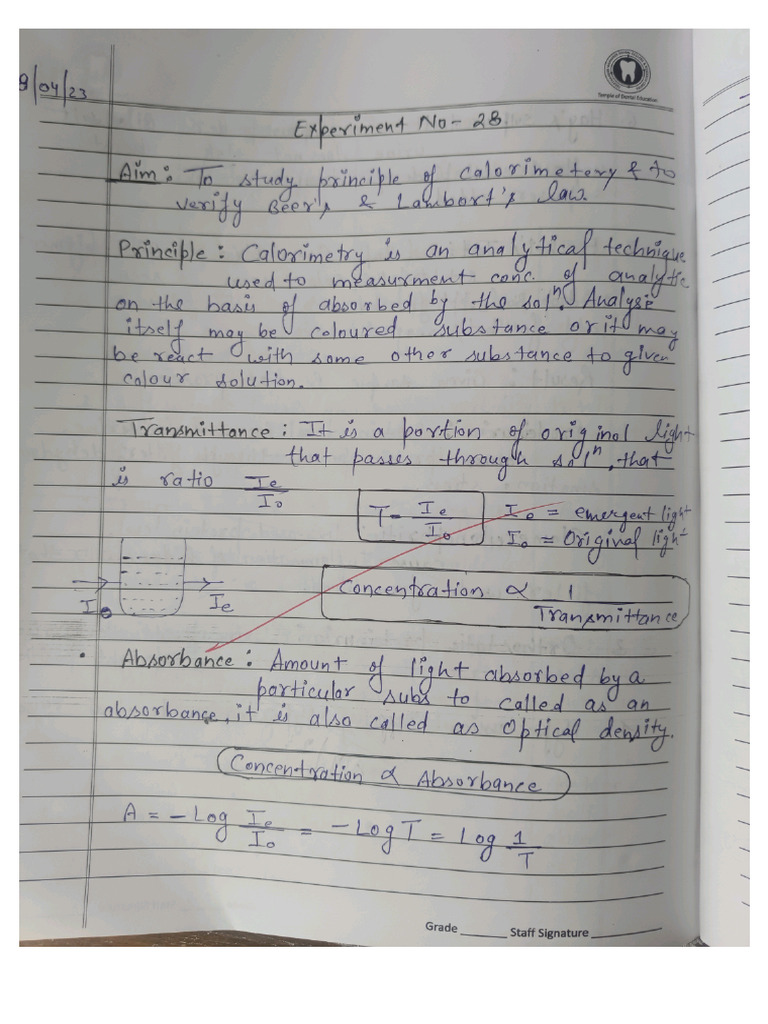 9/04/23
Temple of Dental Education
Experiment No - 28
Aim: To study principle of calorimetery & to
verify Beer's & Lambort's law.
Principle: Calorimetry is an analytical technique
used to measurment conc. of analytic
on the basis of absorbed by the solⁿ. Analyse
itself may be coloured substance or it may
be react with some other substance to given
colour solution.
Transmittance: It is a portion of original light
that passes through solⁿ, that
is ratio Ie/Io
T = Ie/Io
Io = emergent light
Io = Original light
Io
Ie
Concentration ∝ 1/Transmittance
• Absorbance: Amount of light absorbed by a
particular subs to called as an
absorbance, it is also called as Optical density.
Concentration ∝ Absorbance
A = - Log Ie/Io = - Log T = Log 1/T
Grade ______ Staff Signature ______